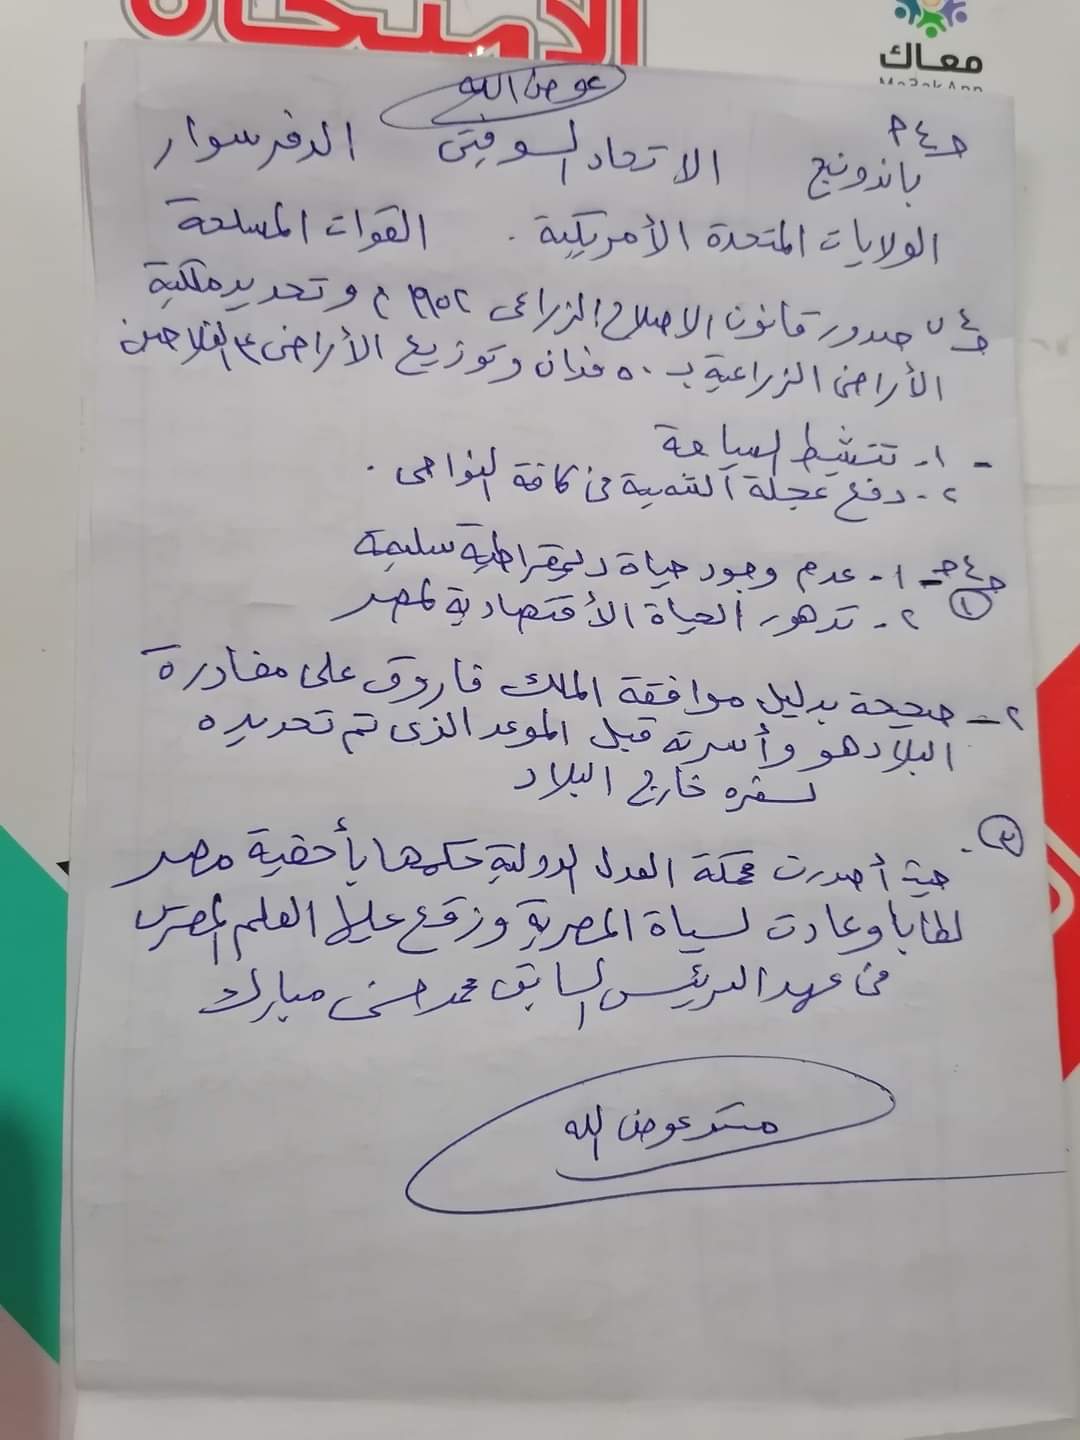 الامتحان
معاك
Ma3ak App
عوض الله
ج٤ م
باندونيج الاتحاد السوفيتى الدفرسوار
الولايات المتحدة الأمريكية . القوات المسلحة
ج٤ ب صدور قانون الاصلاح الزراعى ١٩٥٢ م وتحديد ملكية
الأراضى الزراعية بـ ٥٠ فدان وتوزيع الأراضى ع الفلاحين
- ١- تنشيط السياحة
٢- دفع عجلة التنمية فى كافة النواحى .
ج٤ ج- ١- عدم وجود حياة ديمقراطية سليمة
١ ٢- تدهور الحياة الأقتصادية لمصر
٢- صحيحة بدليل موافقة الملك فاروق على مغادرة
البلاد هو وأسرته قبل الموعد الذى تم تحديده
لسفره خارج البلاد
٣-
حيث أصدرت محكمة العدل الدولية حكمها بأحقية مصر
لطابا وعادت لسيادة المصرية ورفع عليها العلم المصرى
فى عهد الرئيس السابق محمد حسنى مبارك
عوض الله